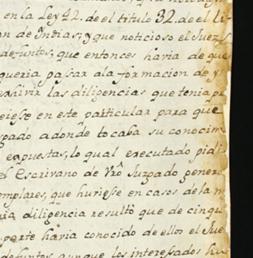 en la Ley 42. de el titulo 32. de el Li
on de Indias; y que noticioso el Juez
defuntos, que entonces havia de que
queria pasar a la formacion de
las diligencias que tenia
en este particular para que
pado adonde tocaba su conocim
expuestas, lo qual executado pidi
Escrivano de Vro Juzgado genera
emplares, que huviese en casos de la m
diligencia resultò que de cinqu
parte havia conocido de ellos el Jue
defuntos aunque los interesados hu